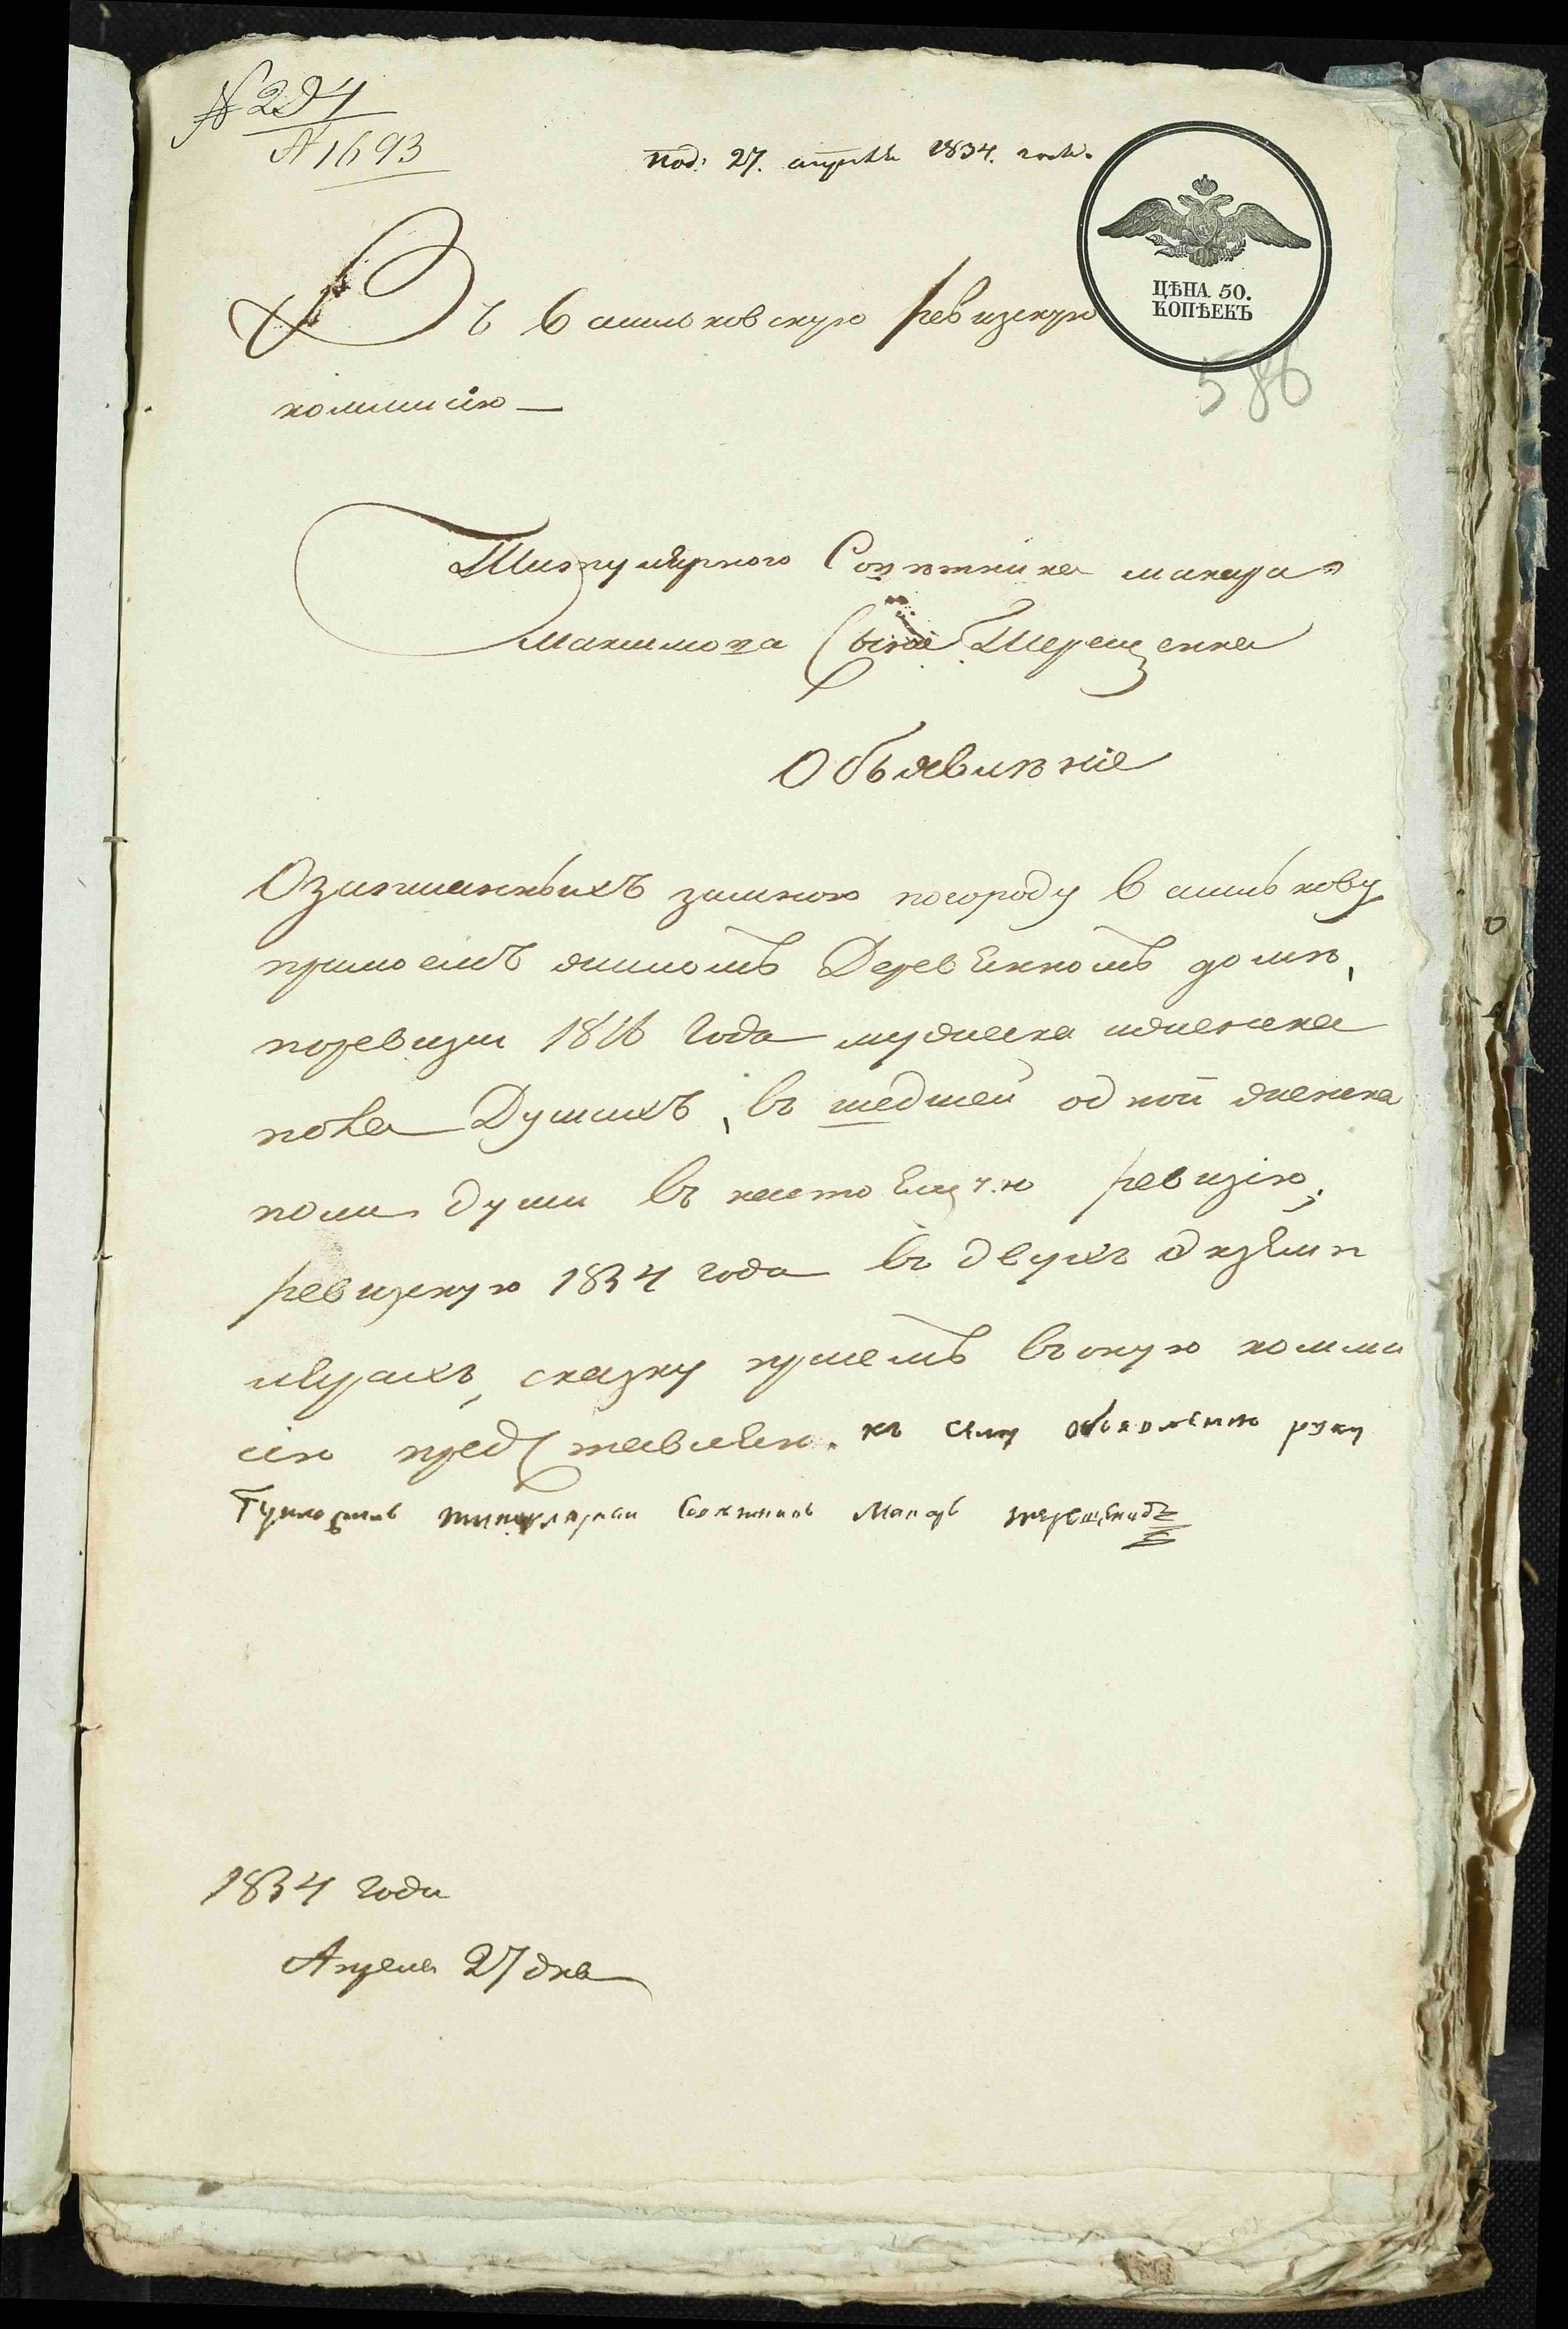 № 294
№ 1693
под: 27. апреля 1834. года.
ЦѢНА 50.
КОПѢЕКЪ
586
Въ Васильковскую ревизскую
коммисію —
Титулярного Советника макара
Максимова Сына Терещенка
Объявленіе
О записанныхъ замною погороду Василькову
примоемъ жиломъ Деревянномъ доме,
поревизіи 1816 года мужеска иженска
пола Душахъ, въ шедшей одной женска
пола души въ настоящую ревизію,
ревизскую 1834 года въ двухъ экземп
лярахъ, сказку присемъ въоную комми
сію представляю. къ сему объявленію руку
Приложилъ титулярный Советникъ Макаръ терещенко
1834 года
Апреля 27 дня